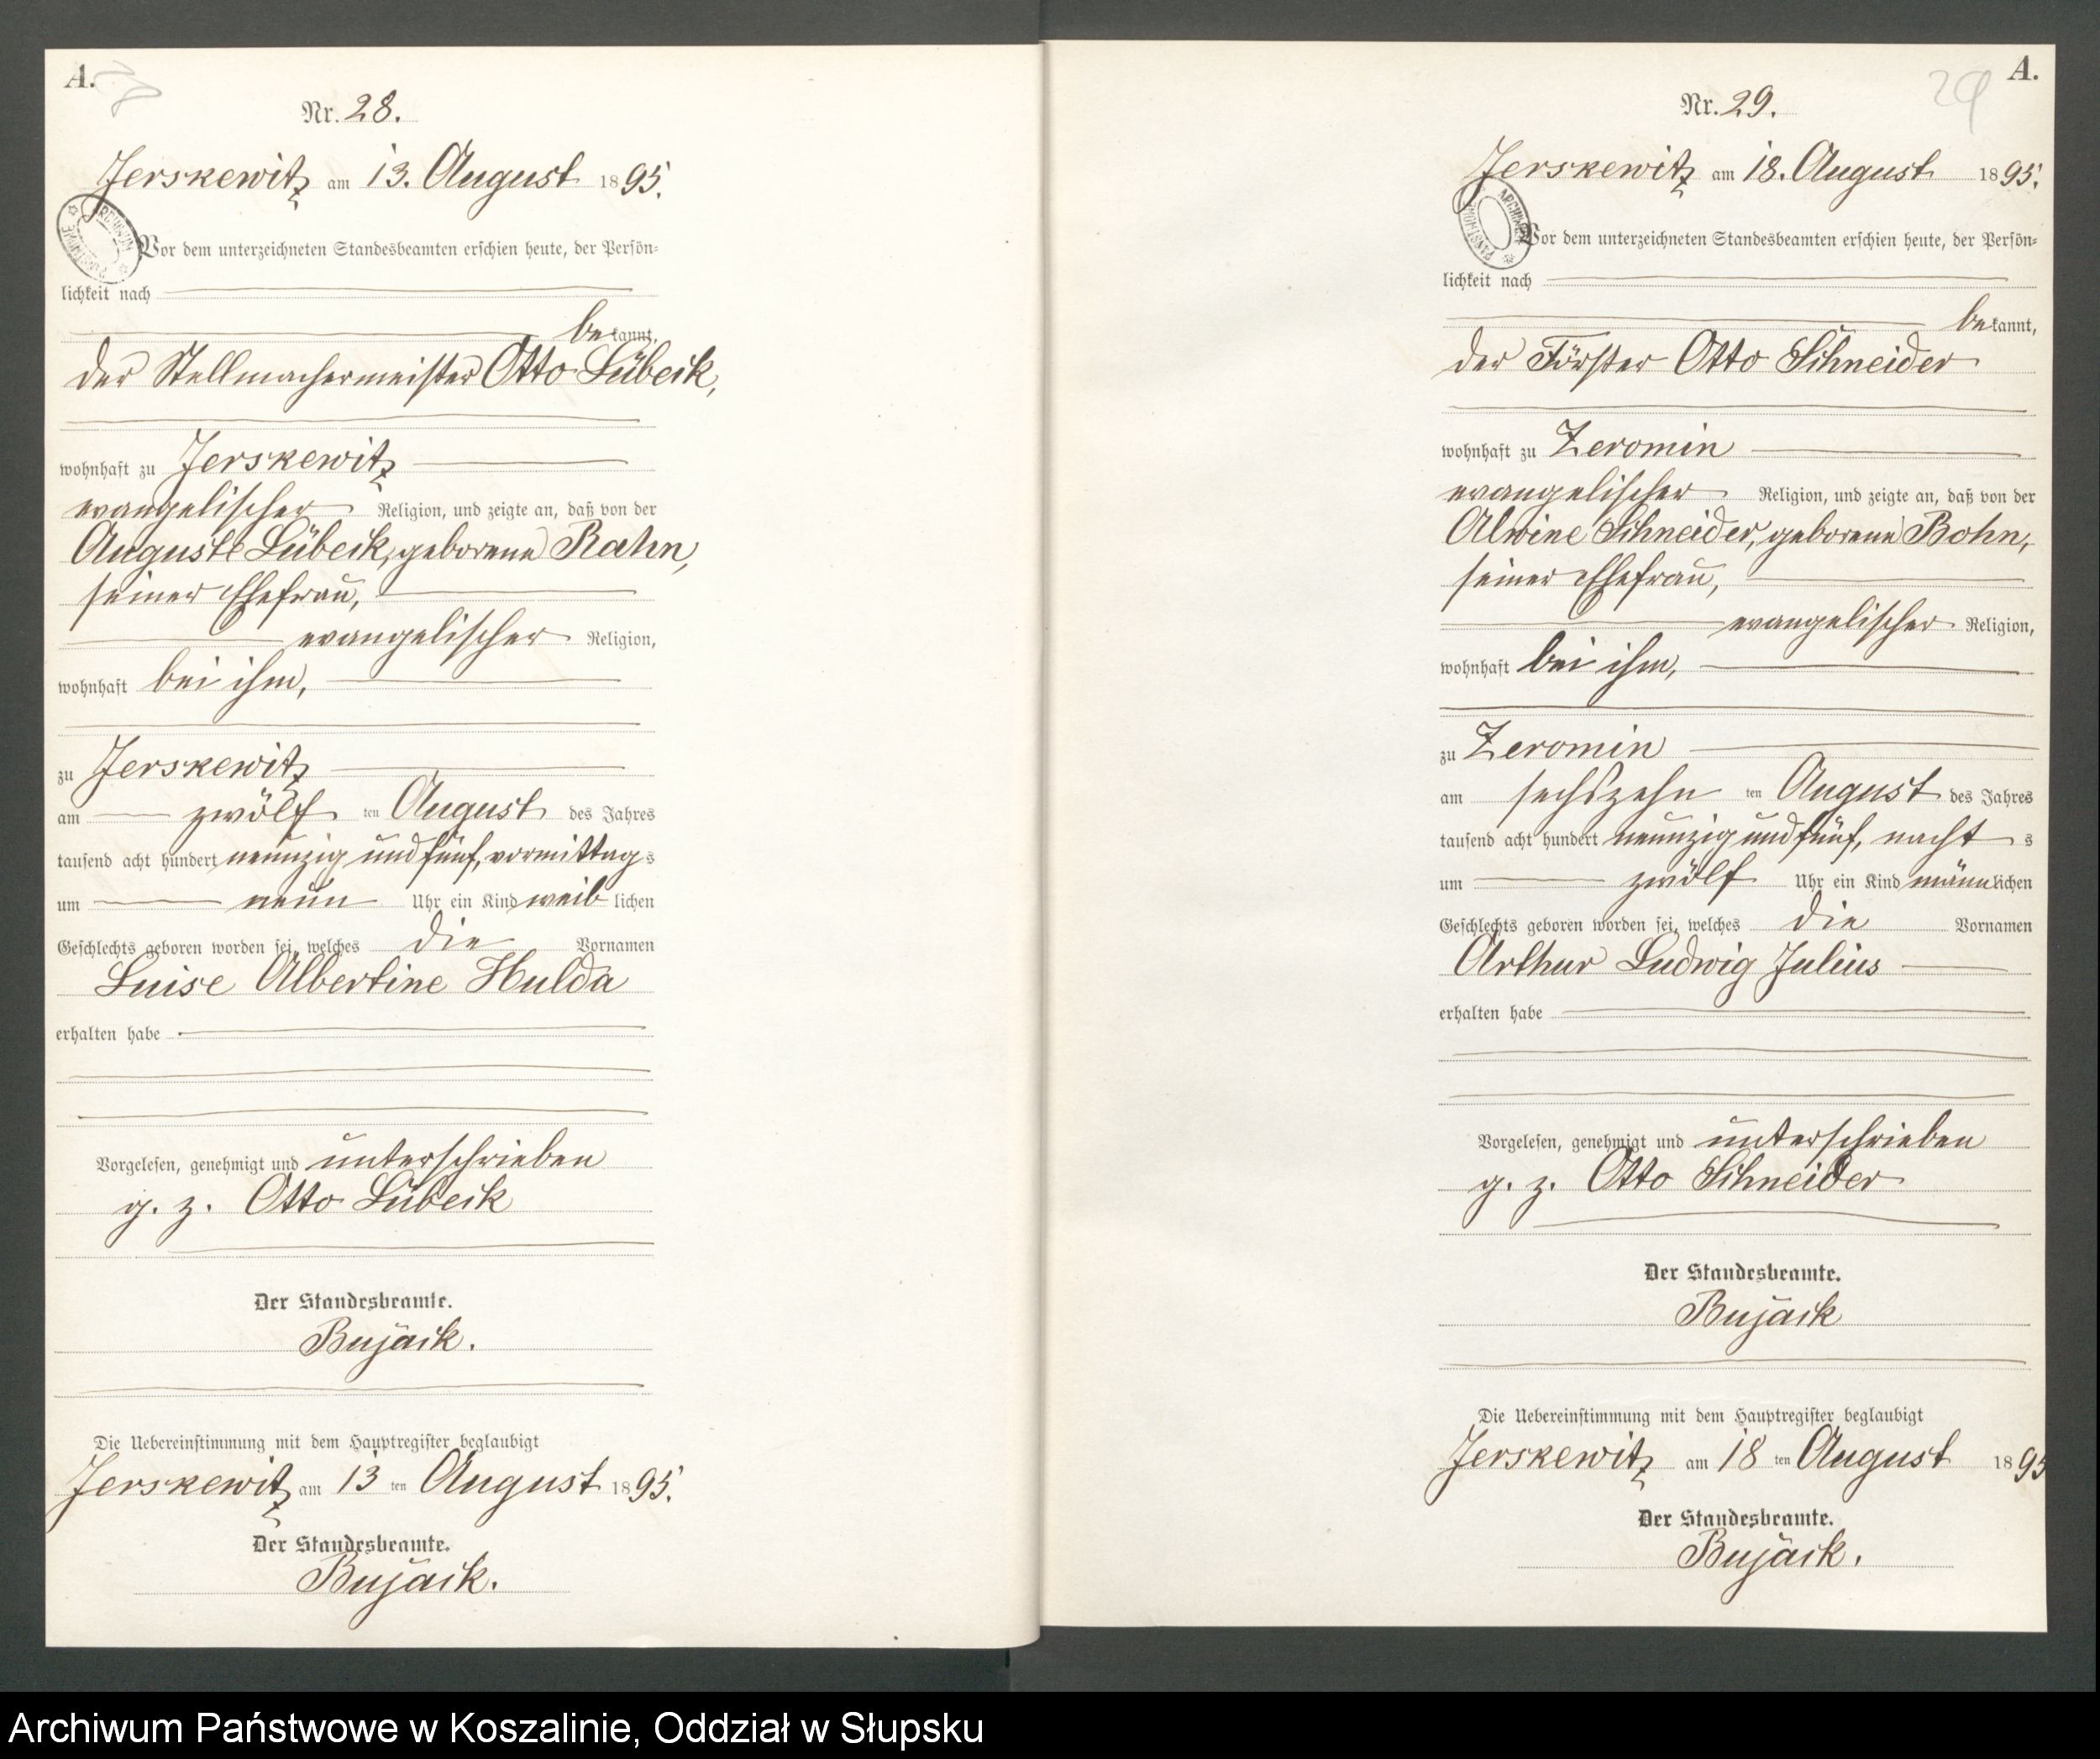 A.
Nr. 28.
Jerskewitz am 13. August 1895.
Vor dem unterzeichneten Standesbeamten erschien heute, der Persön-
lichkeit nach
bekannt,
der Stellmachermeister Otto Lübeck,
wohnhaft zu Jerskewitz
evangelischer Religion, und zeigte an, daß von der
Auguste Lübeck, geborene Rahn,
seiner Ehefrau,
evangelischer Religion,
wohnhaft bei ihm,
zu Jerskewitz
am zwölf ten August des Jahres
tausend acht hundert neunzig und fünf, vormittags
um neun Uhr ein Kind weiblichen
Geschlechts geboren worden sei, welches die Vornamen
Luise Albertine Hulda
erhalten habe
Vorgelesen, genehmigt und unterschrieben
g. z. Otto Lübeck
Der Standesbeamte.
Bujack.
Die Uebereinstimmung mit dem Hauptregister beglaubigt
Jerskewitz am 13 ten August 1895.
Der Standesbeamte.
Bujack.
A.
29
Nr. 29.
Jerskewitz am 18. August 1895.
ARCHIWUM PAŃSTWOWE
Vor dem unterzeichneten Standesbeamten erschien heute, der Persön-
lichkeit nach
bekannt,
der Förster Otto Schneider
wohnhaft zu Zeromin
evangelischer Religion, und zeigte an, daß von der
Alwine Schneider, geborene Bohn,
seiner Ehefrau,
evangelischer Religion,
wohnhaft bei ihm,
zu Zeromin
am sechszehn ten August des Jahres
tausend acht hundert neunzig und fünf, nachts
um zwölf Uhr ein Kind männlichen
Geschlechts geboren worden sei, welches die Vornamen
Arthur Ludwig Julius
erhalten habe
Vorgelesen, genehmigt und unterschrieben
g. z. Otto Schneider
Der Standesbeamte.
Bujack
Die Uebereinstimmung mit dem Hauptregister beglaubigt
Jerskewitz am 18 ten August 1895
Der Standesbeamte.
Bujack.
Archiwum Państwowe w Koszalinie, Oddział w Słupsku